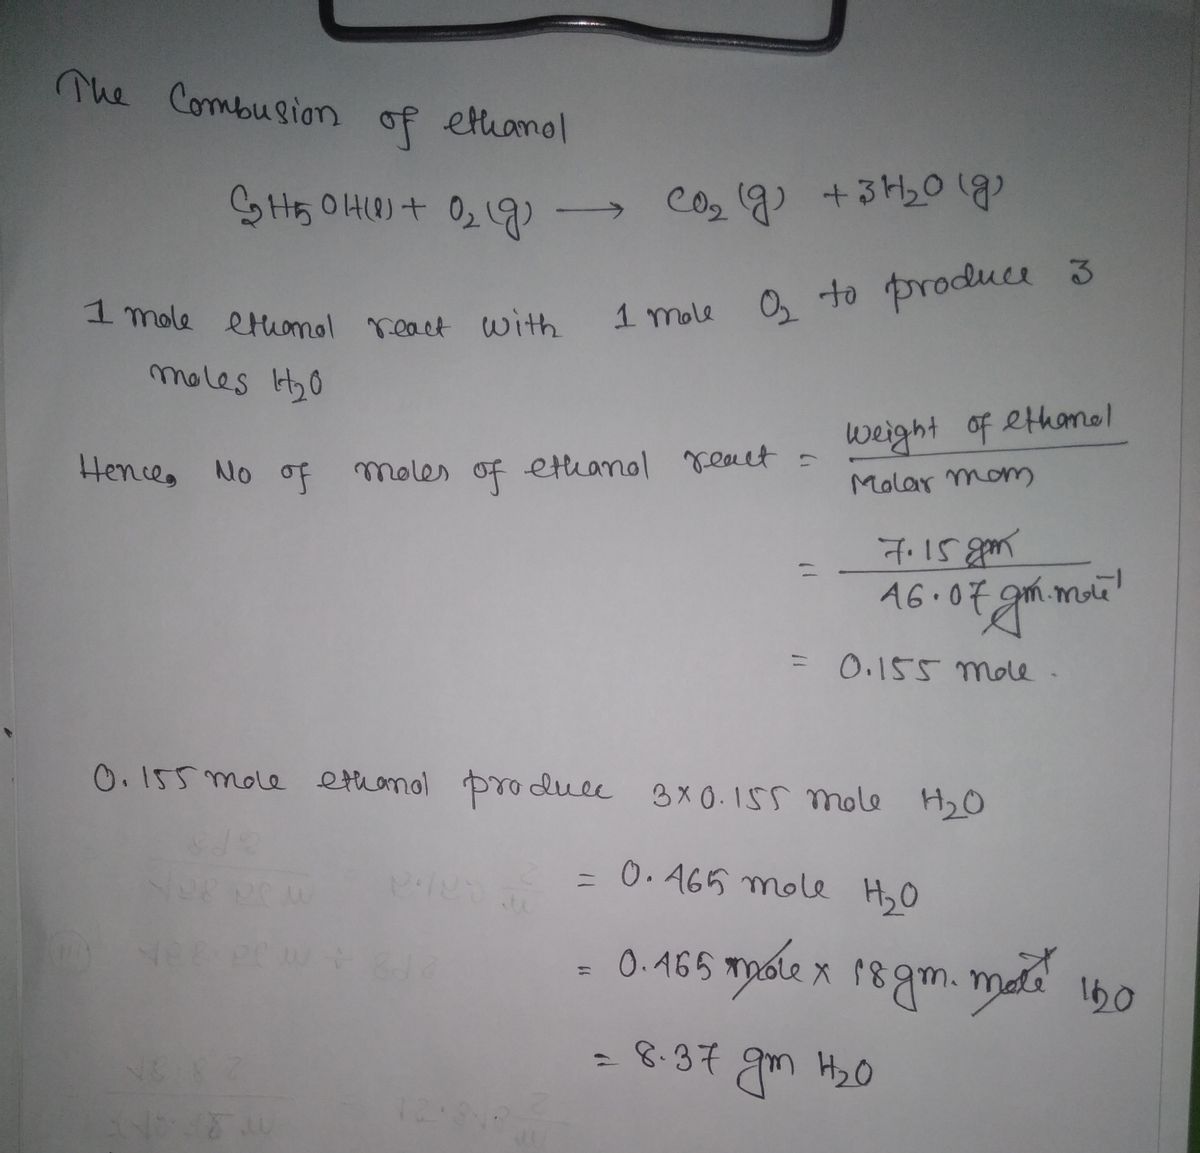 The Combusion of ethanol
C2H5OH(l) + O2(g) → CO2(g) + 3H2O(g)
1 mole ethanol react with 1 mole O2 to produce 3
moles H2O
Hence, No of moles of ethanol react = Weight of ethanol / Molar mass
= 7.15 gm / 46.07 gm.mole-1
= 0.155 mole.
0.155 mole ethanol produce 3×0.155 mole H2O
= 0.465 mole H2O
= 0.465 mole × 18 gm.mole-1 H2O
= 8.37 gm H2O